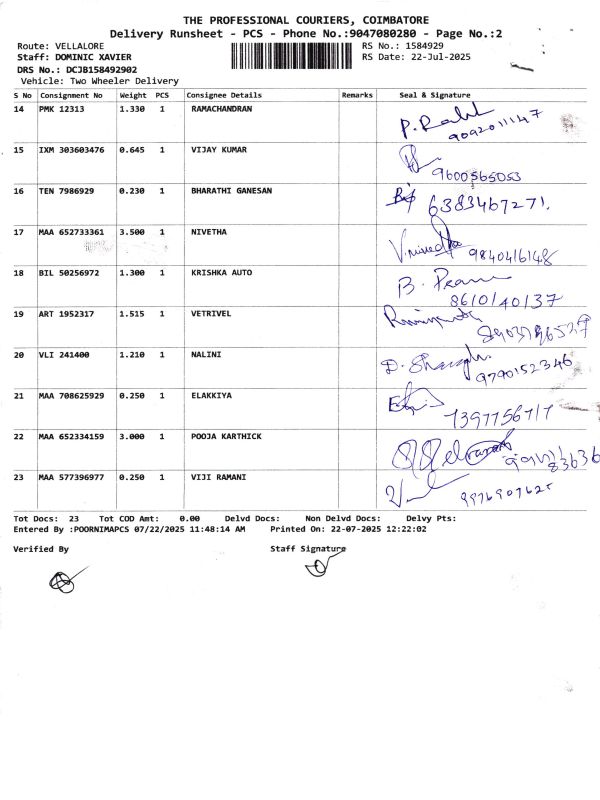 THE PROFESSIONAL COURIERS, COIMBATORE
Delivery Runsheet - PCS - Phone No.:9047080280 - Page No.:2
Route: VELLALORE
Staff: DOMINIC XAVIER
DRS No.: DCJB158492902
Vehicle: Two Wheeler Delivery
RS No.: 1584929
RS Date: 22-Jul-2025
S No Consignment No Weight PCS Consignee Details Remarks Seal & Signature
14 PMK 12313 1.330 1 RAMACHANDRAN
9092011147
15 IXM 303603476 0.645 1 VIJAY KUMAR
9600565053
16 TEN 7986929 0.230 1 BHARATHI GANESAN
6383467271.
17 MAA 652733361 3.500 1 NIVETHA
9840416148
18 BIL 50256972 1.300 1 KRISHKA AUTO
8610140137
19 ART 1952317 1.515 1 VETRIVEL
20 VLI 241400 1.210 1 NALINI
9790152346
21 MAA 708625929 0.250 1 ELAKKIYA
22 MAA 652334159 3.000 1 POOJA KARTHICK
23 MAA 577396977 0.250 1 VIJI RAMANI
9976907625
Tot Docs: 23 Tot COD Amt: 0.00 Delvd Docs: Non Delvd Docs: Delvy Pts:
Entered By :POORNIMAPCS 07/22/2025 11:48:14 AM Printed On: 22-07-2025 12:22:02
Verified By Staff Signature